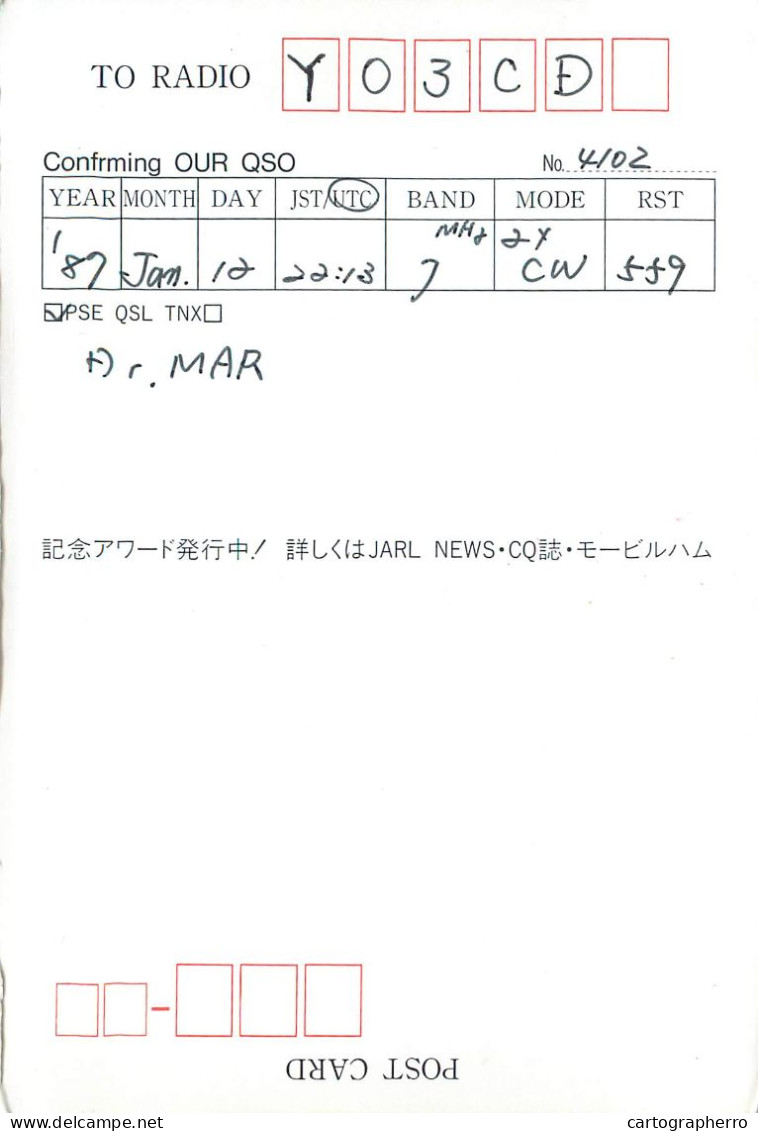 TO RADIO YO3CD
Confrming OUR QSO No. 4102
YEAR MONTH DAY JST/UTC BAND MODE RST
'87 Jan. 12 22:13 7 MHz 2X CW 559
PSE QSL TNX
Dr. MAR
記念アワード発行中! 詳しくはJARL NEWS・CQ誌・モービルハム
POST CARD
www.delcampe.net
cartographerro